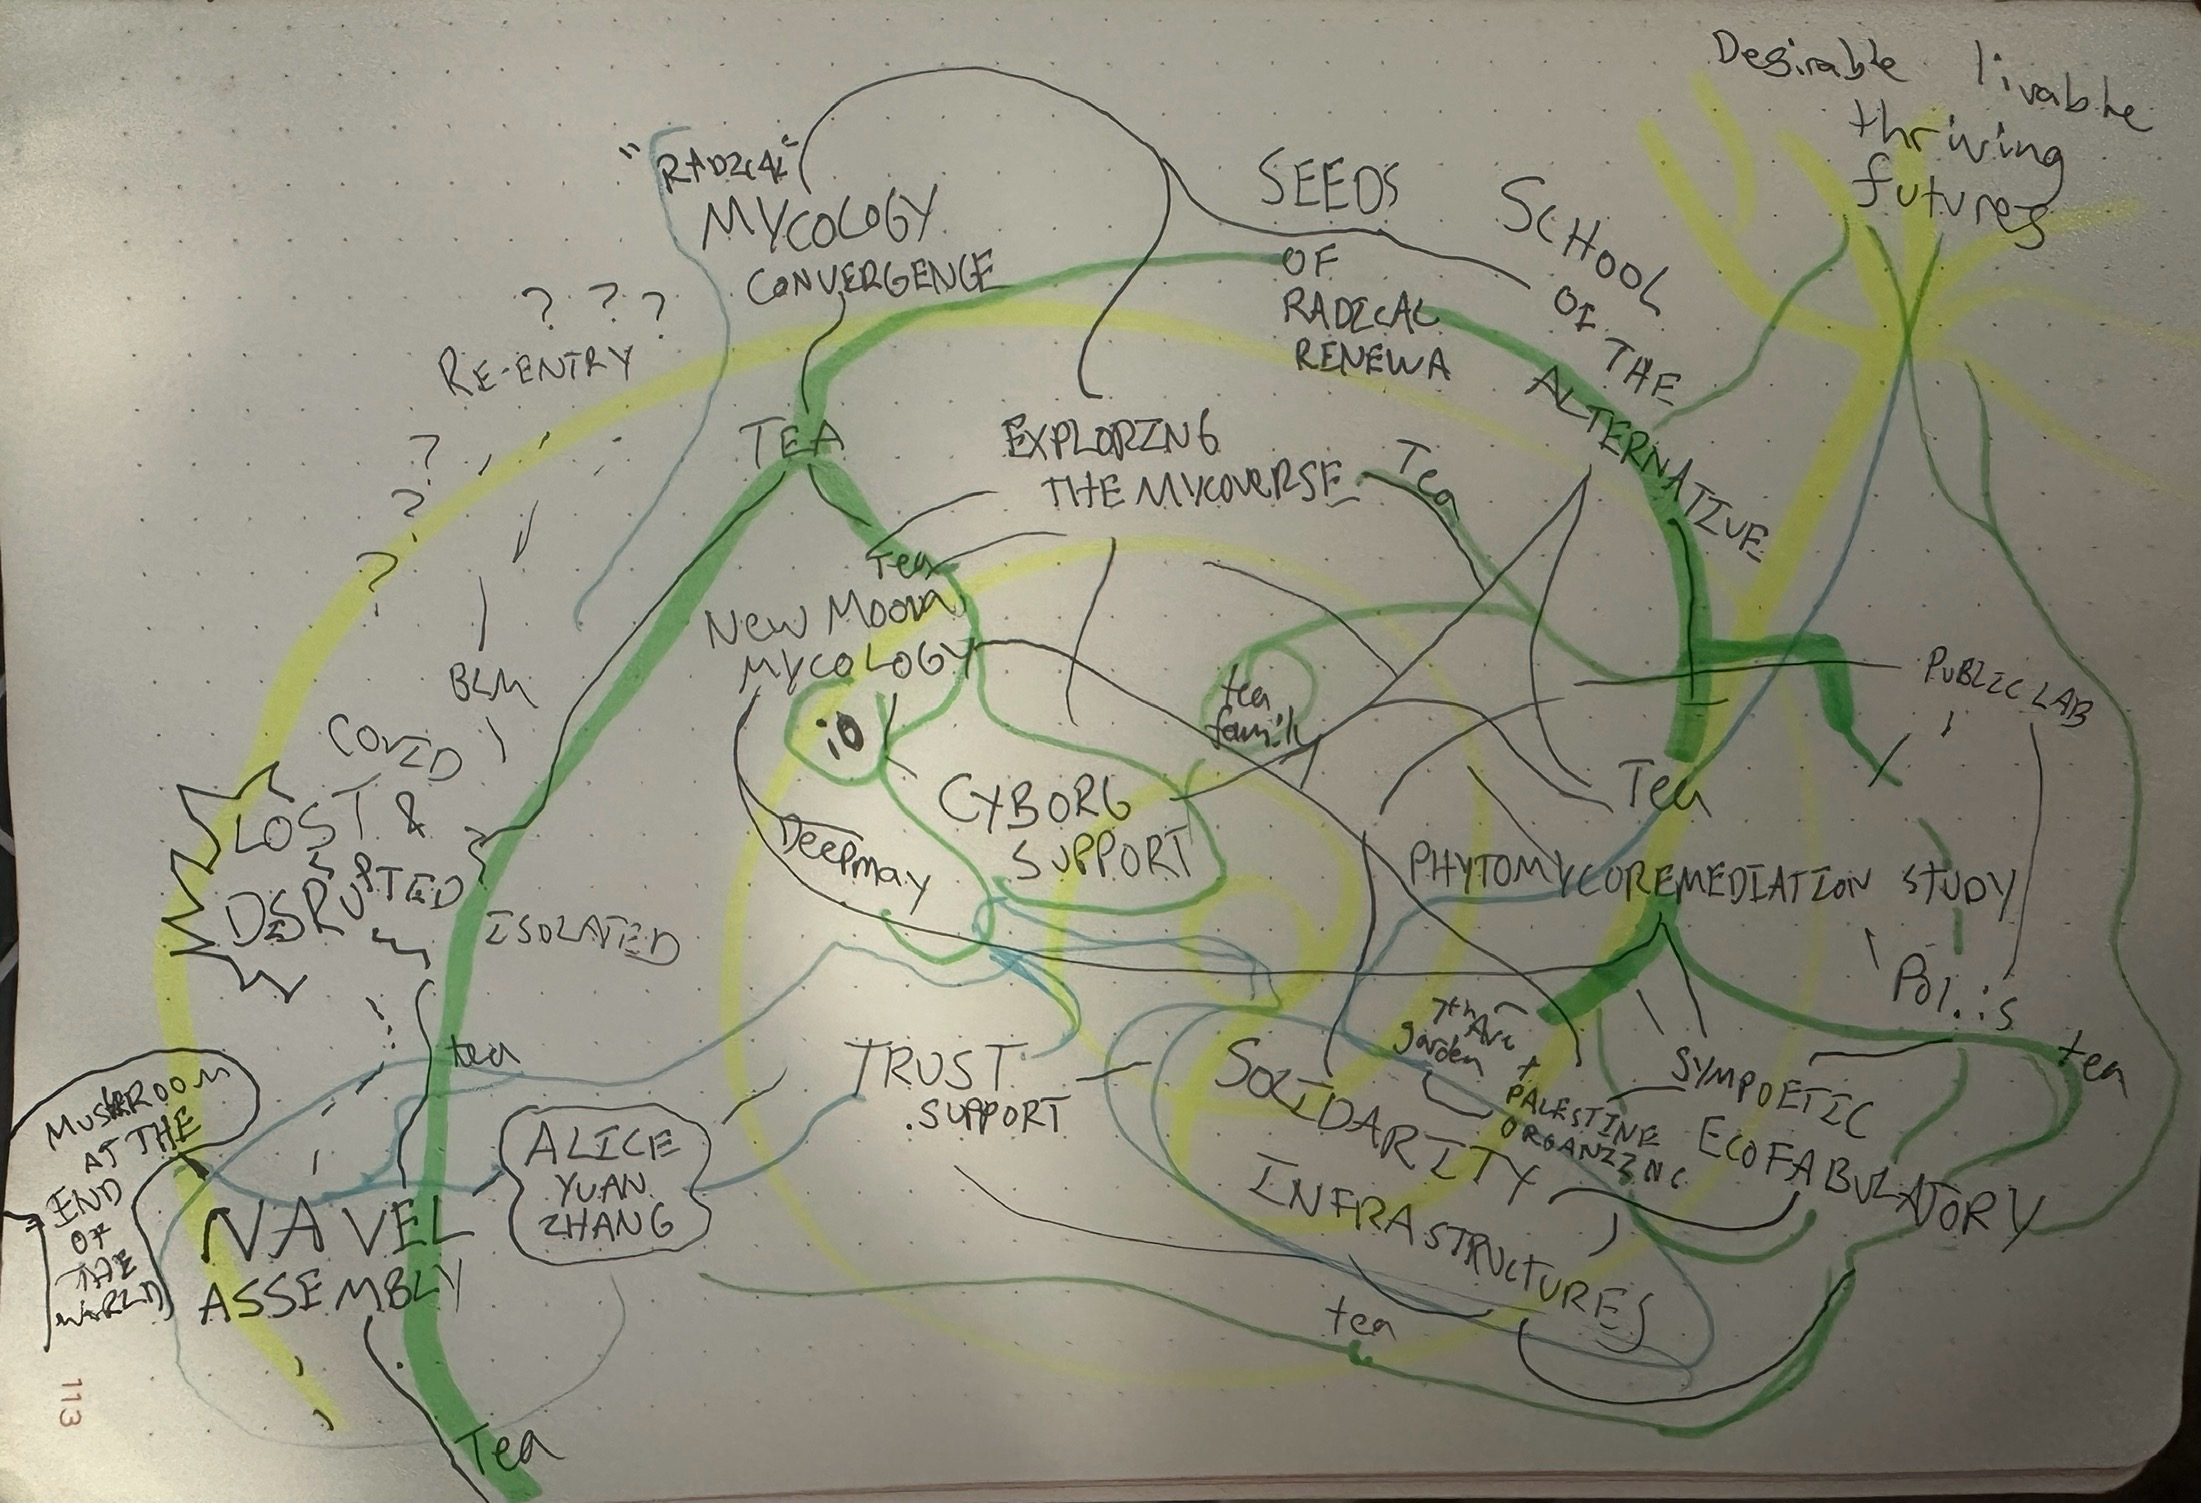 Desirable livable
thriving
futures
"RADICAL"
MYCOLOGY
CONVERGENCE
SEEDS
OF
RADICAL
RENEWA
SCHOOL
OF THE
ALTERNATIVE
? ? ?
RE-ENTRY
?
?
?
TEA
EXPLORING
THE MYCOVERSE
Tea
Tea
NEW MOON
MYCOLOGY
BLM
COVID
LOST &
DISRUPTED
ISOLATED
io
tea
family
PUBLIC LAB
CYBORG
SUPPORT
Deepmay
Tea
PHYTOMYCOREMEDIATION STUDY
Pol.is
7th Ave
garden
+
PALESTINE
ORGANIZING
tea
TRUST
SUPPORT
SOLIDARITY
INFRASTRUCTURES
SYMPOETIC
ECOFABULATORY
tea
MUSHROOM
AT THE
END
OF
THE
WORLD
ALICE
YUAN
ZHANG
NAVEL
ASSEMBLY
tea
Tea
113